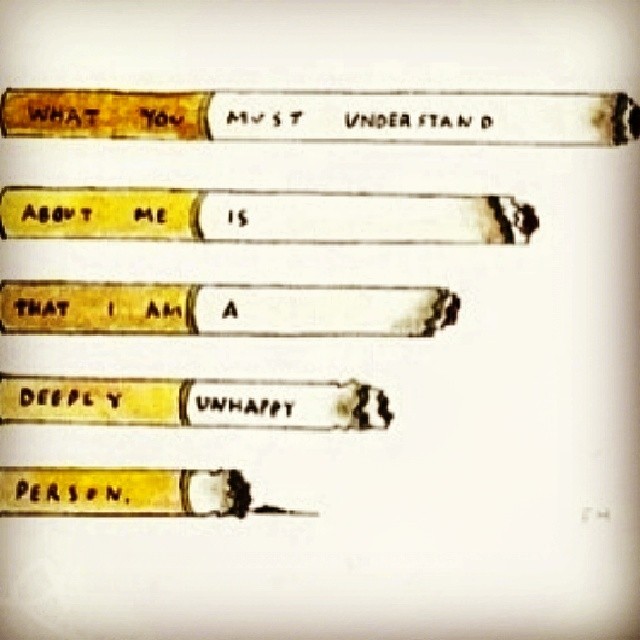 WHAT YOU MUST UNDERSTAND
ABOUT ME IS
THAT I AM A
DEEPLY UNHAPPY
PERSON.